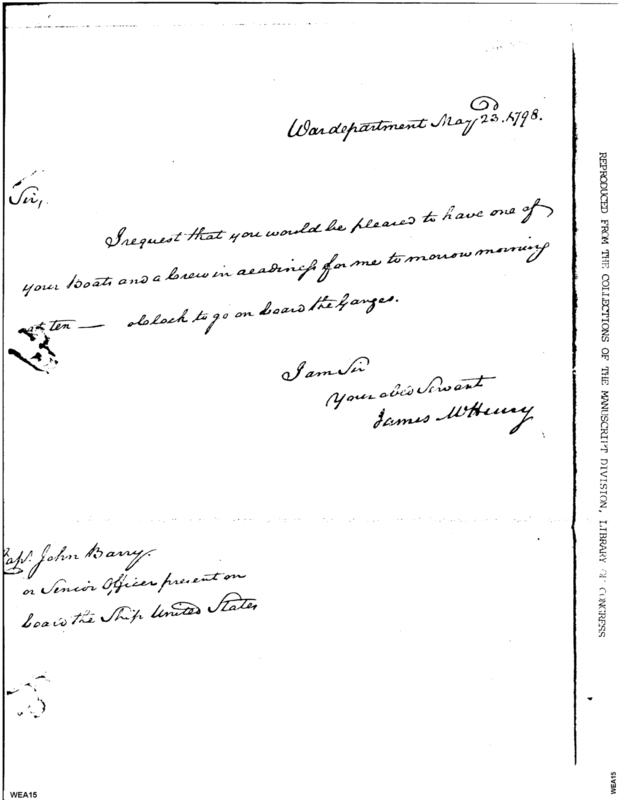 War department May 23.d 1798.
Sir,
I request that you would be pleased to have one of
your Boats and a Crew in readiness for me to morrow morning
at ten — oClock to go on board the Ganges.
I am Sir
Your obed Servant
James McHenry
Capt. John Barry
or Senior Officer present on
board the Ship United States
REPRODUCED FROM THE COLLECTIONS OF THE MANUSCRIPT DIVISION, LIBRARY OF CONGRESS
WEA15
WEA15